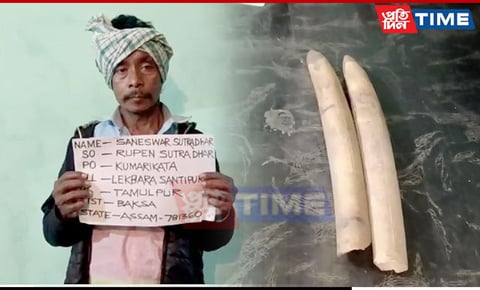 প্রতিদিন TIME
NAME- SANESWAR SUTRADHAR
SO - RUPEN SUTRADHAR
PO - KUMARIKATA
LEKHARA SANTIPUR
TAMULPUR
BAKSA
STATE-ASSAM-781360
TIME